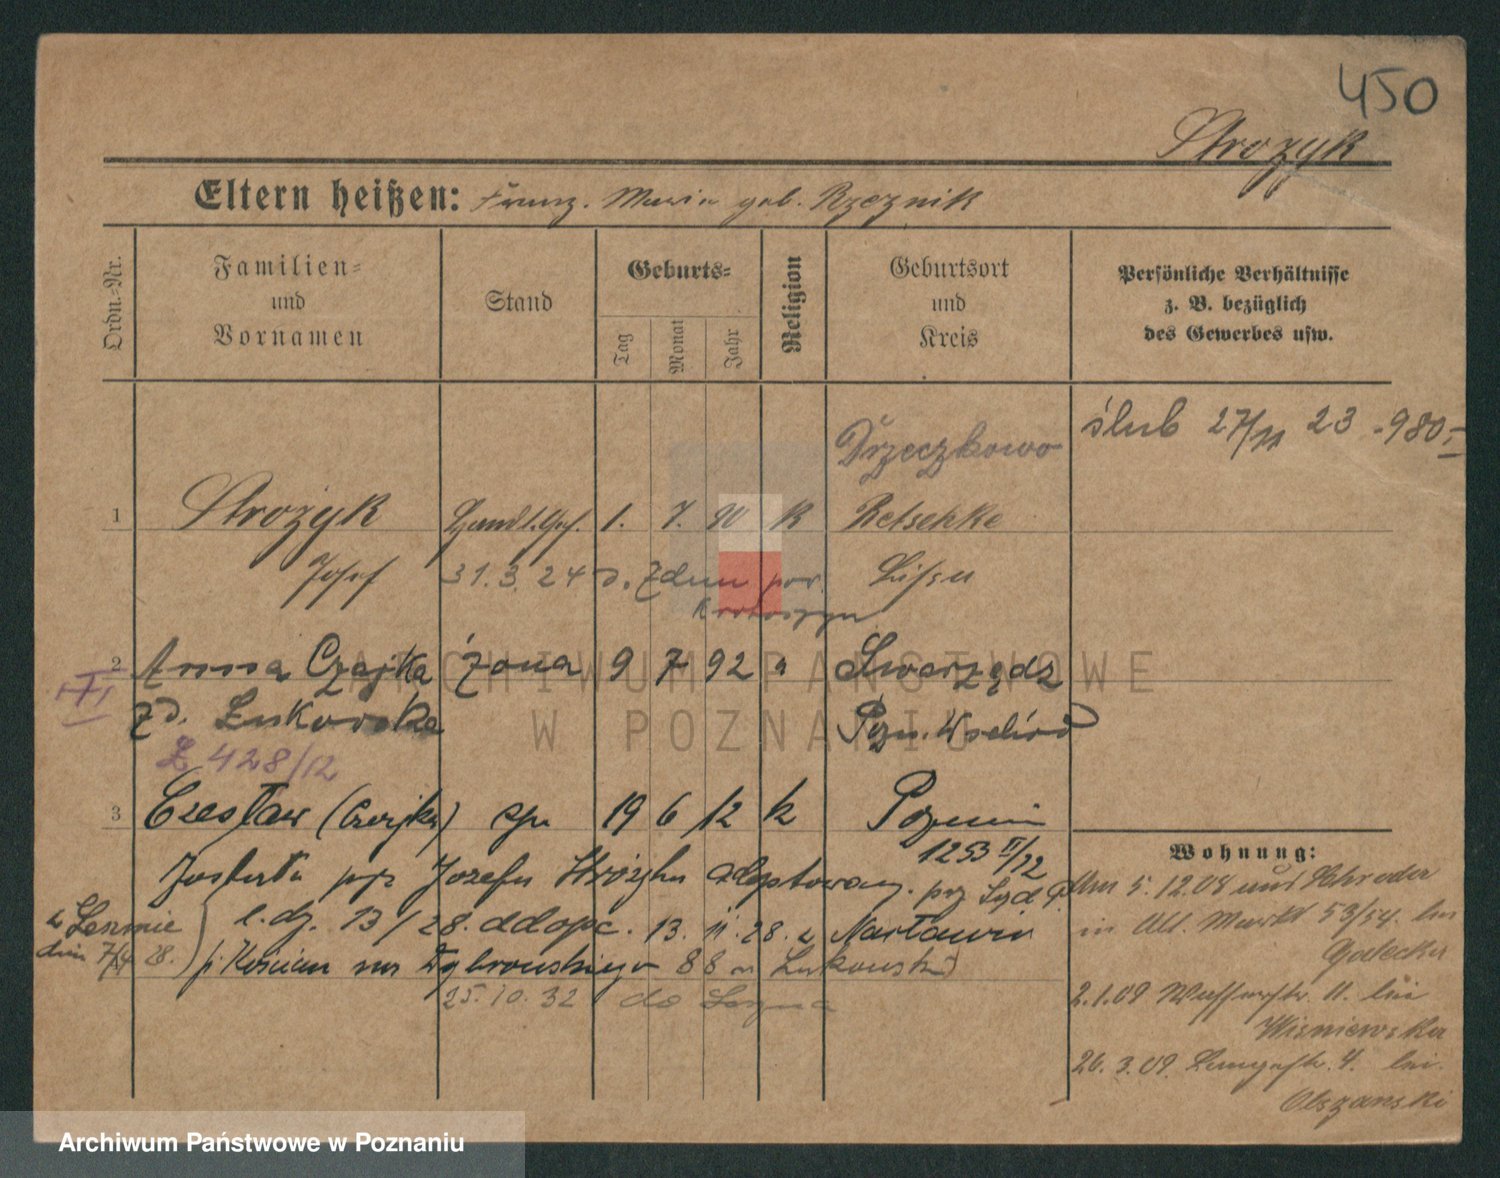 450
Strozyk
Eltern heißen: Franz. Maria geb. Rzeznik
Ordn.-Nr.
Familien-
und
Vornamen
Stand
Geburts-
Tag
Monat
Jahr
Religion
Geburtsort
und
Kreis
Persönliche Verhältnisse
z. B. bezüglich
des Gewerbes usw.
Drzeczkowo
ślub 27/11 23 -980,-
1 Strozyk Handl. Geh. 1. 7. 90 K Retschke
Josef 31.3.24 d. Zduny pow. Lissa
Krotoszyn
2 Anna Czajka żona 9 7 92 " Swarzędz
zd. Łukowska Pozn. Wschód
Ł 428/12
3 Czesław (Czajka) syn 19 6 12 k Poznań
1253 II/22
Wohnung:
został prz Józefa Stróżyka adoptowany. prz Sąd
w Lesznie l. dz. 13/28. ddopc. 13. 11. 28.
dnia 28.
25.10.32 do Leszna
5.12.08 und Schroder
in Alt. Markt 53/54. bei
Galecka
2.1.09 Wasserstr. 11. bei
Wisniewska
26.3.09 Langestr. 4. bei
Olszanski
ARCHIWUM PAŃSTWOWE
W POZNANIU
Archiwum Państwowe w Poznaniu